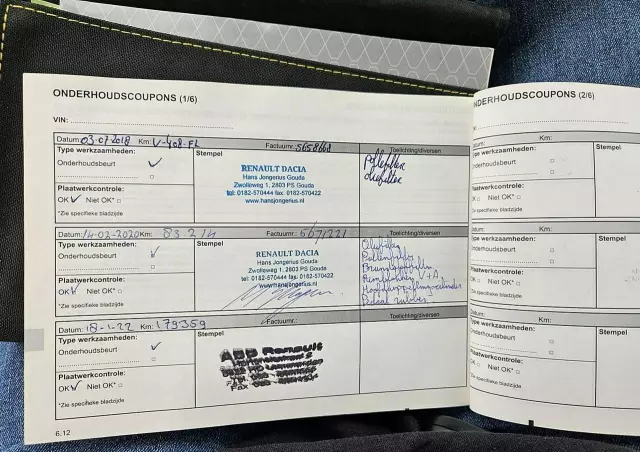 ONDERHOUDSCOUPONS (1/6)
VIN:
Datum: 03-07-2018 Km: V-408-FL Factuurnr.: 5658668 Toelichting/diversen
Type werkzaamheden: Stempel
Onderhoudsbeurt
Plaatwerkcontrole:
OK Niet OK*
*Zie specifieke bladzijde
RENAULT DACIA
Hans Jongerius Gouda
Zwolleweg 1, 2803 PS Gouda
tel: 0182-570444 fax: 0182-570422
www.hansjongerius.nl
Datum: 14-02-2020 Km: 83.214 Factuurnr.: 5671221 Toelichting/diversen
Type werkzaamheden: Stempel
Onderhoudsbeurt
Plaatwerkcontrole:
OK Niet OK*
*Zie specifieke bladzijde
RENAULT DACIA
Hans Jongerius Gouda
Zwolleweg 1, 2803 PS Gouda
tel: 0182-570444 fax: 0182-570422
www.hansjongerius.nl
Datum: 18-1-22 Km: 179359 Factuurnr.: Toelichting/diversen
Type werkzaamheden: Stempel
Onderhoudsbeurt
Plaatwerkcontrole:
OK Niet OK*
*Zie specifieke bladzijde
ABD Renault
6.12
ONDERHOUDSCOUPONS (2/6)
Datum: Km:
Type werkzaamheden:
Onderhoudsbeurt
Plaatwerkcontrole:
OK Niet OK*
*Zie specifieke bladzijde
Datum: Km:
Type werkzaamheden:
Onderhoudsbeurt
Plaatwerkcontrole:
OK Niet OK*
*Zie specifieke bladzijde
Datum: Km:
Type werkzaamheden:
Onderhoudsbeurt
Plaatwerkcontrole:
OK Niet OK*
*Zie specifieke bladzijde